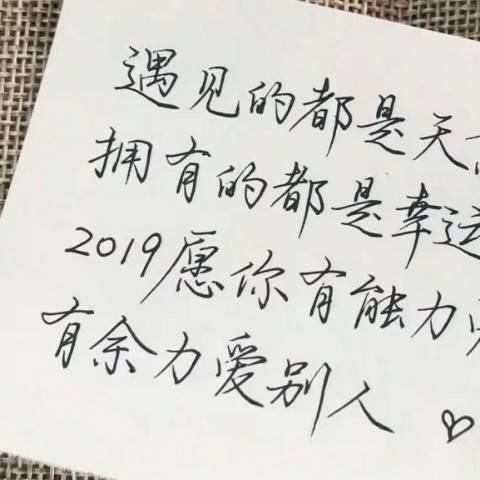 遇见的都是天
拥有的都是幸运
2019愿你有能力
有余力爱别人